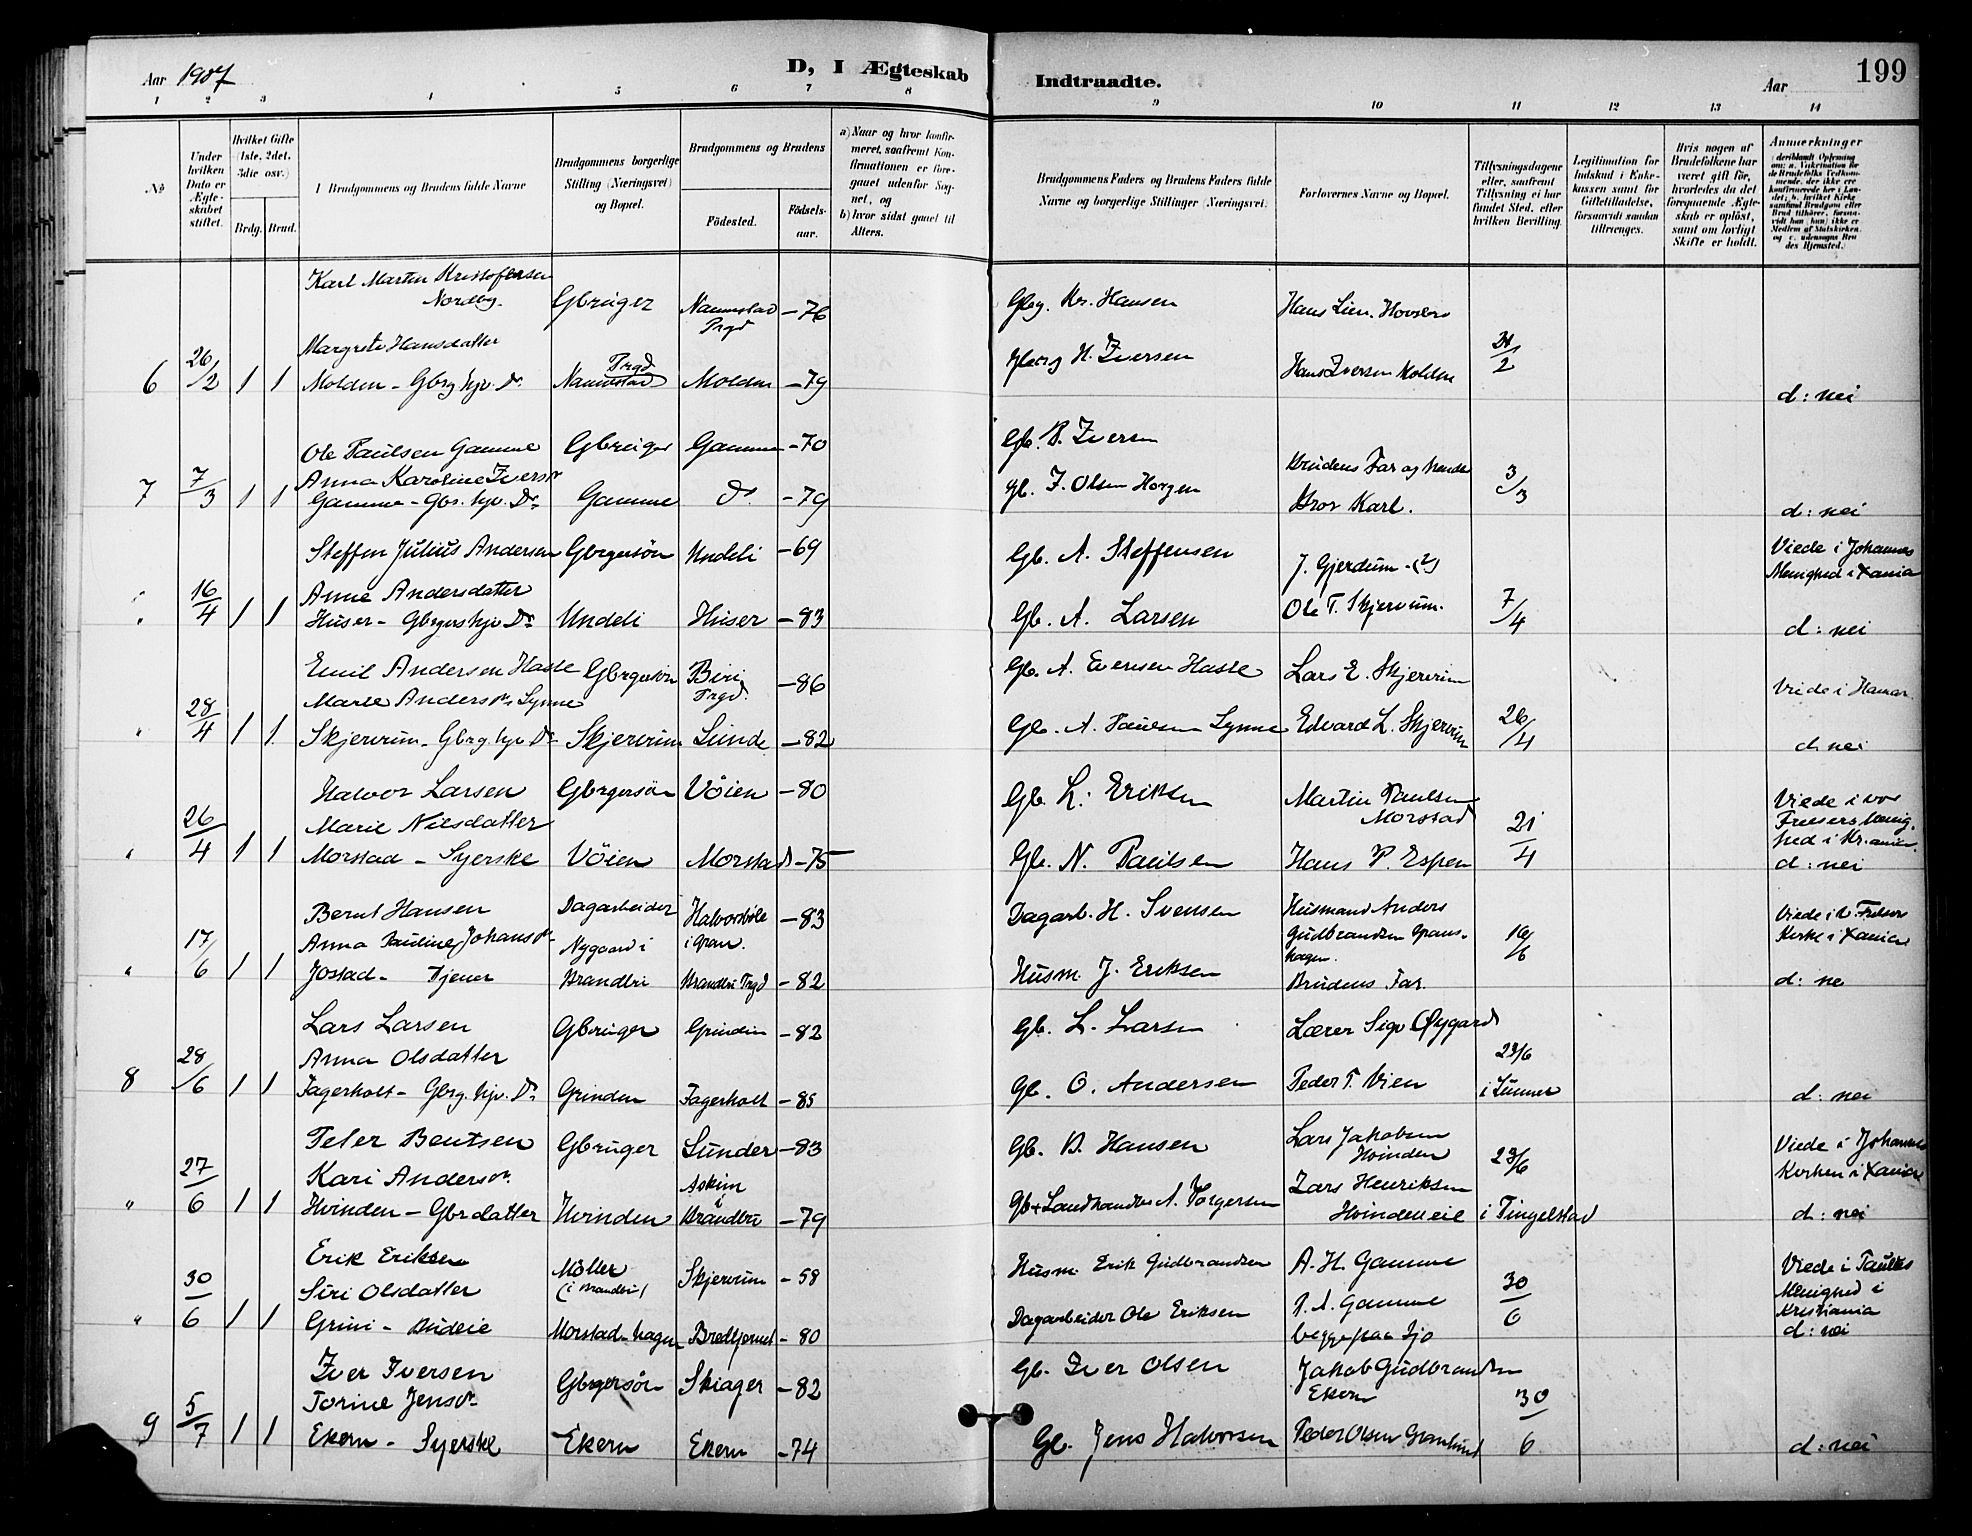 Aar 1907
D, I Ægteskab Indtraadte.
Aar
199
1 2 3 4 5 6 7 8 9 10 11 12 13 14
No
Under hvilken Dato er Ægteskabet stiftet.
Hvilket Gifte (1ste, 2det, 3die osv.)
Brdg. Brud.
Brudgommens og Brudens fulde Navne
Brudgommens borgerlige Stilling (Næringsvei) og Bopæl.
Brudgommens og Brudens
Födested.
Födsels-aar.
a) Naar og hvor konfirmeret, saafremt Konfirmationen er foregaaet udenfor Sognet, og
b) hvor sidst gaaet til Alters.
Brudgommens Faders og Brudens Faders fulde Navne og borgerlige Stillinger (Næringsvei).
Forlovernes Navne og Bopæl.
Tillysningsdagene eller, saafremt Tillysning ei har fundet Sted, efter hvilken Bevilling.
Legitimation for Indskud i Enkekassen samt for Giftetilladelse, forsaavidt saadan tiltrænges.
Hvis nogen af Brudefolkene har været gift för, hvorledes da det foregaaende Ægteskab er oplöst, samt om lovligt Skifte er holdt.
Anmærkninger
Karl Martin Kristofersen Nordby. Gbruger Naumstad Prgd -76 Gbg. Kr. Hansen Hans Lien. Hovsbro
6 26/2 1 1 Margrete Hansdatter Molden - Gbrg hjv. Dr. Naumstad Prgd Molden -79 Gbrg H. Iversen Hans Iversen Molden 21/2 d: nei
Ole Paulsen Gamme Gbruger Gamme -70 Gb. P. Iversen Brudens Far og hendes
7 7/3 1 1 Anna Karoline Iversdr Gamme - Gbr. hjv. Dr. Gamme Dr. -79 Gb. I. Olsen Horgen Bror Karl. 3/3 d: nei
Steffen Julius Andersen Gbrgersön Undeli -69 Gb. A. Steffensen J. Gjerdum - (2) Viede i Johannes Menighed i Xania
16/4 1 1 Anne Andersdatter Huser - Gbrgers hjv Dr. Undeli Huser -83 Gb. A. Larsen Ole T. Skjervum. 7/4 d: nei
Emil Andersen Hasle Gbrgersön Biri Prgd. -86 Gb. A. Evensen Hasle Lars E. Skjervum Viede i Hamar
" 28/4 1 1 Marte Andersdr Lynne Skjervum - Gbrg hjv Dr. Skjervum Lunde -82 Gb. A. Paulsen Lynne Edvard L. Skjervum 26/4 d. nei
Halvor Larsen Gbrgersön Vöien -80 Gb. L. Eriksen Martin Paulsen Morstad Viede i vor Frelsers Menighed i Kr.ania.
" 26/4 1 1 Marie Nilsdatter Morstad - Syerske Vöien Morstad -75 Gb. N. Paulsen Hans P. Espen 21/4 d: nei
Bernt Hansen Dagarbeider Halvorsböle i Gran. -83 Dagarb. H. Svensen Husmand Anders Gudbrandsen Granshagen. Viede i Frelsers Kirke i Xania
" 17/6 1 1 Anna Pauline Johansdr Jostad - Tjener Nygaard i Brandbu Brandbu Prgd -82 Husm. J. Eriksen Brudens Far. 16/6 d: ne
Lars Larsen Gbruger Grinden -82 Gb. L. Larsen Lærer Sigv Øygard
8 28/6 1 1 Anna Olsdatter Fagerholt - Gbrg. hjv. Dr. Grinden Fagerholt -85 Gb. O. Andersen Peder T. Vien 23/6 i Lunner d: nei
Peter Bentsen Gbruger Lunder -83 Gb. B. Hansen Lars Jakobsen Hvinden Viede i Johannes Kirken i Xania
" 27/6 1 1 Kari Andersdr. Hvinden - Gbrdatter Hvinden Askim i Brandbu -79 Gb + Landhandler A. Torgersen Lars Henriksen Hvindeneie 23/6 i Tingelstad d: nei
Erik Eriksen Möller (i Brandbu) Skjervum -58 Husm Erik Gudbrandsen A. H. Gamme Viede i Paulus Menighed i Kristiania
" 30/6 1 1 Siri Olsdatter Grini - Budeie Morstad-hagen Bredtjernet -80 Dagarbeider Ole Eriksen P. A. Gamme begge paa Sjo 30/6 d: nei
Iver Iversen Gbrgersön Skiager -82 Gb. Iver Olsen Jakob Gudbrandsen Ekern
9 5/7 1 1 Torine Jensdr Ekern - Syerske Ekern Ekern -74 Gb. Jens Halvorsen Peder Olsen Grønlund 30/6 d: nei